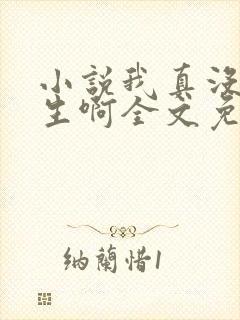 小説我真没
生啊全文免
纳蘭惜1